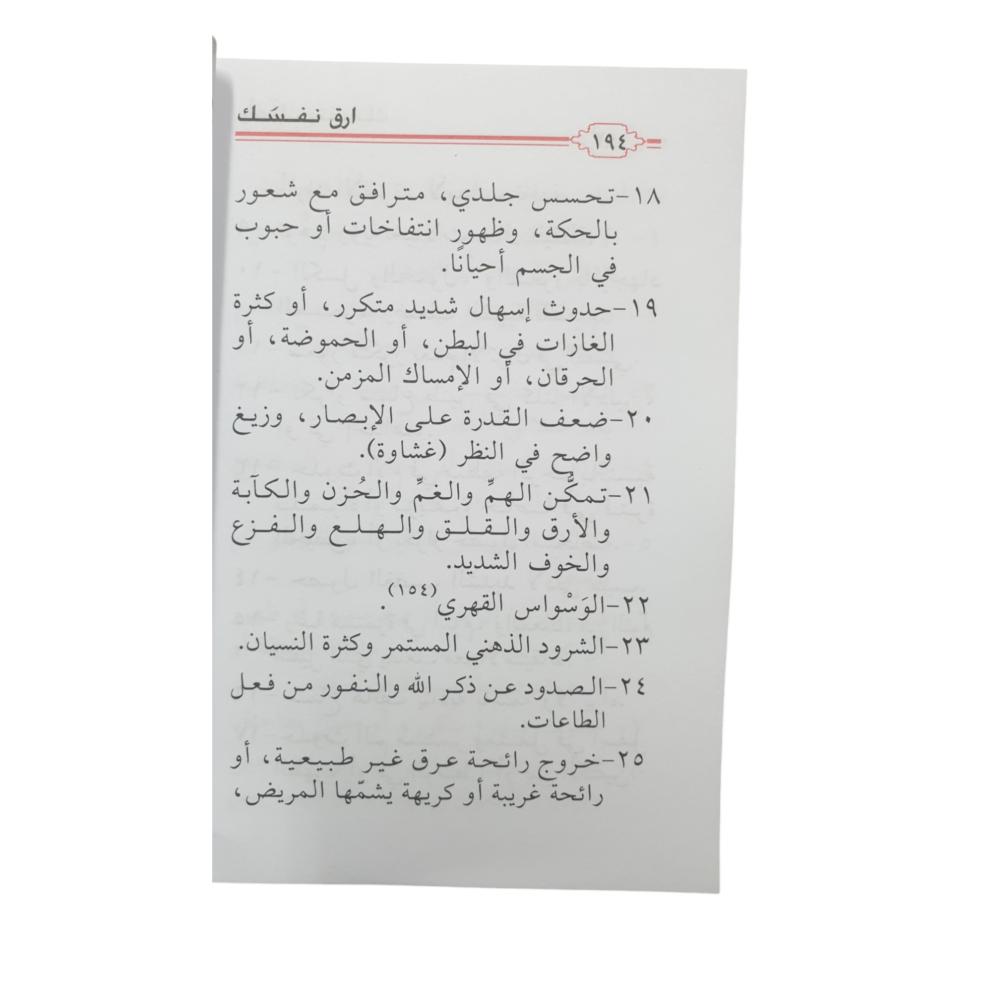 ارق نفسَك
١٩٤
١٨-تحسس جلدي، مترافق مع شعور
بالحكة، وظهور انتفاخات أو حبوب
في الجسم أحيانًا.
١٩-حدوث إسهال شديد متكرر، أو كثرة
الغازات في البطن، أو الحموضة، أو
الحرقان، أو الإمساك المزمن.
٢٠-ضعف القدرة على الإبصار، وزيغ
واضح في النظر (غشاوة).
٢١-تمكُّن الهمِّ والغمِّ والحُزن والكآبة
والأرق والقلق والهلع والفزع
والخوف الشديد.
٢٢-الوَسْواس القهري(١٥٤).
٢٣-الشرود الذهني المستمر وكثرة النسيان.
٢٤-الصدود عن ذكر الله والنفور من فعل
الطاعات.
٢٥-خروج رائحة عرق غير طبيعية، أو
رائحة غريبة أو كريهة يشمّها المريض،